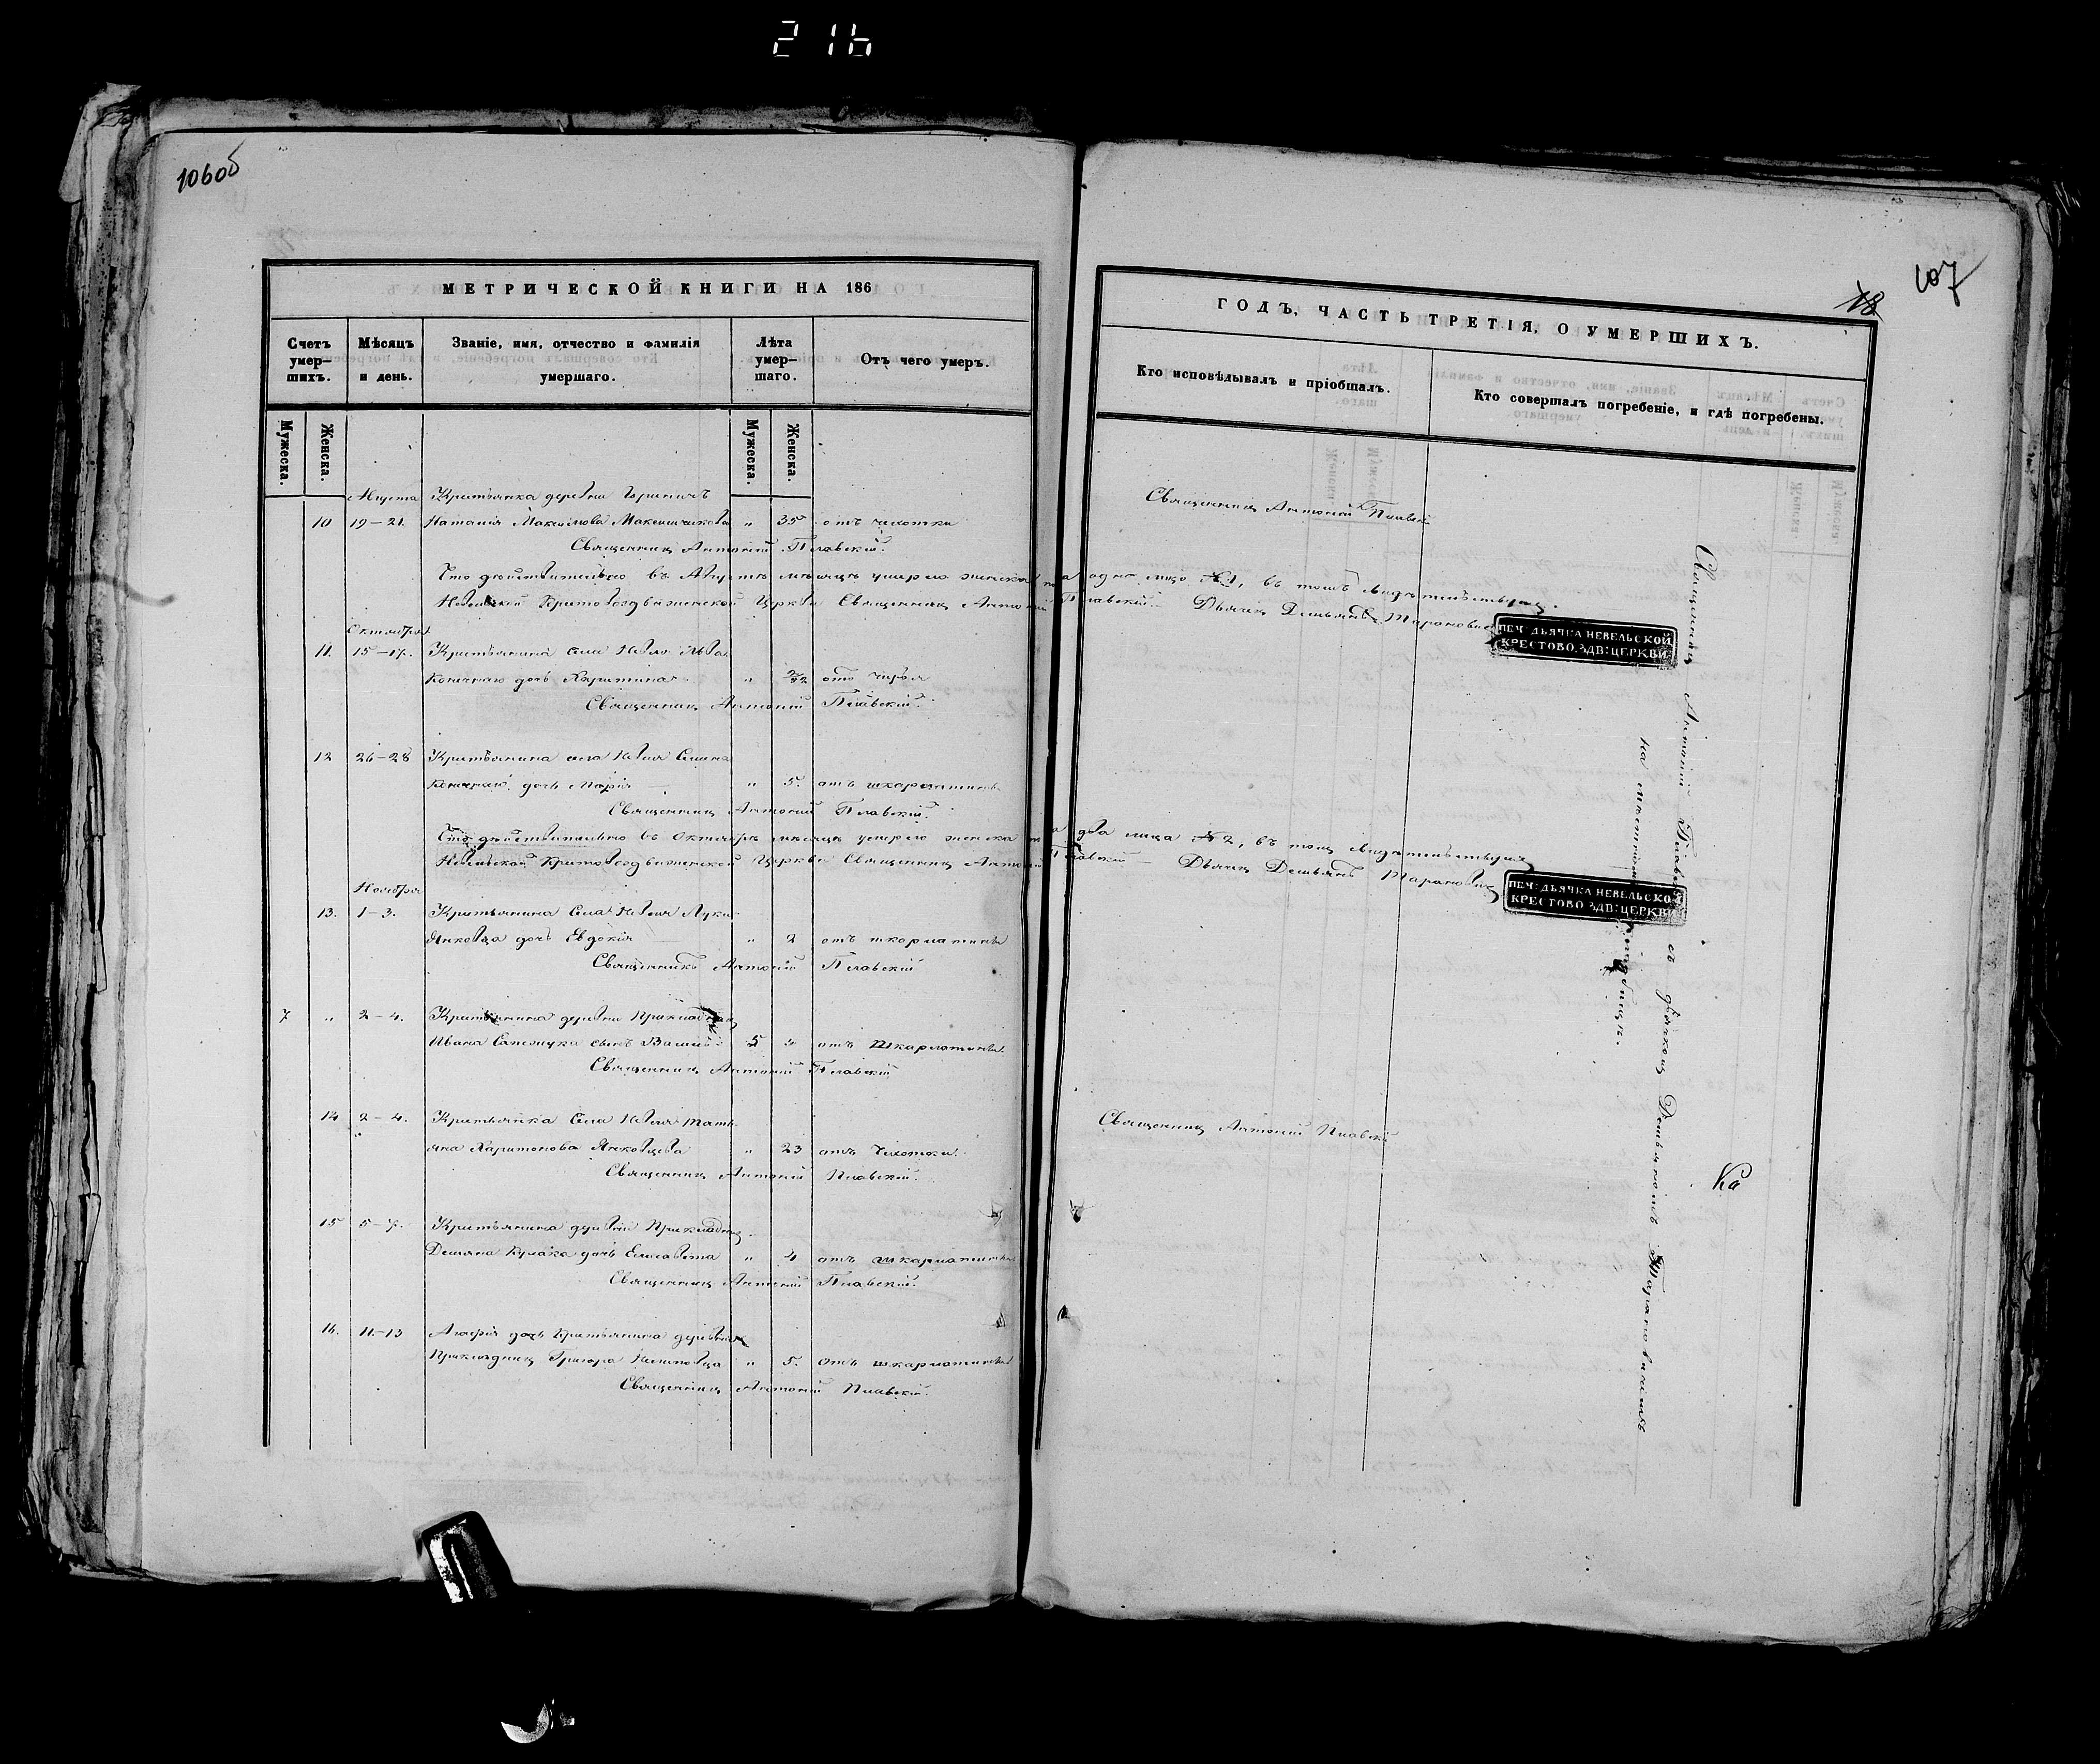 216
106об
МЕТРИЧЕСКОЙ КНИГИ НА 186
Счетъ умер— шихъ.
Мѣсяцъ и день.
Званіе, имя, отчество и фамилія умершаго.
Лѣта умер— шаго.
Отъ чего умеръ.
Мужеска.
Женска.
Мужеска.
Женска.
Августа Крестьянка деревни
10 19–21. Наталія Максимова " 35 отъ чихотки
Священникъ Антоній Плавскій.
Что дѣйствительно въ Августѣ мѣсяцѣ умерло женска пола одно лице №1, въ томъ свидѣтельствуютъ.
Невельской Крестовоздвиженской Церкви Священникъ Антоній Плавскій. Дьячекъ Демьянъ Тарановичъ
Октября
11. 15–17. Крестьянина села Невля
дочь Харитина " отъ
Священникъ Антоній Плавскій.
12 26–28 Крестьянина села Невля
дочь Марія " 5. отъ шкарлатины
Священникъ Антоній Плавскій.
Что дѣйствительно въ Октябрѣ мѣсяцѣ умерло женска пола два лица №2, въ томъ свидѣтельствуютъ
Невельской Крестовоздвиженской Церкви Священникъ Антоній Плавскій Дьячекъ Демьянъ Тарановичъ
Ноября
13. 1–3. Крестьянина Села Невля Луки
Янковца дочь Евдокія " 2 отъ шкарлатины
Священникъ Антоній Плавскій
7 " 2–4. Крестьянина деревни Прикладникъ
Ивана сынъ 5 " отъ Шкарлатины.
Священникъ Антоній Плавскій
14 2–4. Крестьянка Села Невля Тать-
яна Харитонова Янковцева " 23 отъ Чихотки.
Священникъ Антоній Плавскій.
15 5–7. Крестьянина деревни Прикладникъ
Демьяна Кулака дочь Елисавета " 4 отъ шкарлатины
Священникъ Антоній Плавскій.
16. 11–13 дочь Крестьянина деревни
Прикладникъ Григора " 5. отъ шкарлатины
Священникъ Антоній Плавскій.
107
18
ГОДЪ, ЧАСТЬ ТРЕТІЯ, О УМЕРШИХЪ.
Кто исповѣдывалъ и пріобщалъ.
Кто совершалъ погребеніе, и гдѣ погребены.
Священникъ Антоній Плавскій
ПЕЧ: ДЬЯЧКА НЕВЕЛЬСКОЙ
КРЕСТОВОЗДВ: ЦЕРКВИ
ПЕЧ: ДЬЯЧКА НЕВЕЛЬСКОЙ
КРЕСТОВОЗДВ: ЦЕРКВИ
Священникъ Антоній Плавскій
Священникъ Антоній Плавскій съ дьячкомъ Демьяномъ Тарановичемъ
на кладбищѣ.
Ка